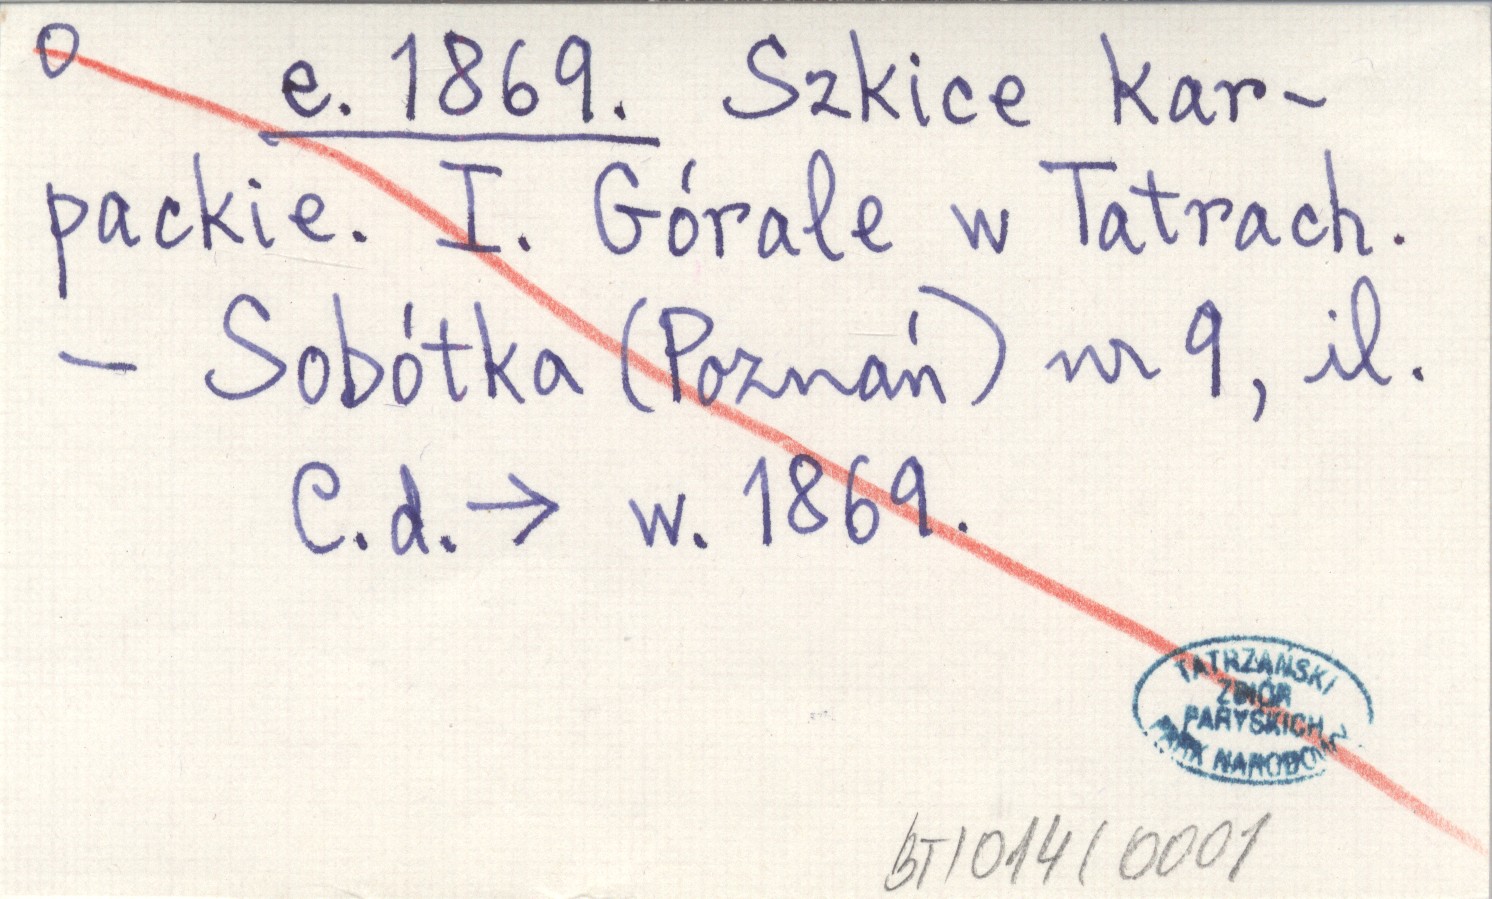 O e. 1869. Szkice kar-
packie. I. Górale w Tatrach.
- Sobótka (Poznań) nr 9, il.
C.d. → w. 1869.
TATRZAŃSKI
ZBIÓR
PARYSKICH
PARK NARODOWY
BT/014/0001